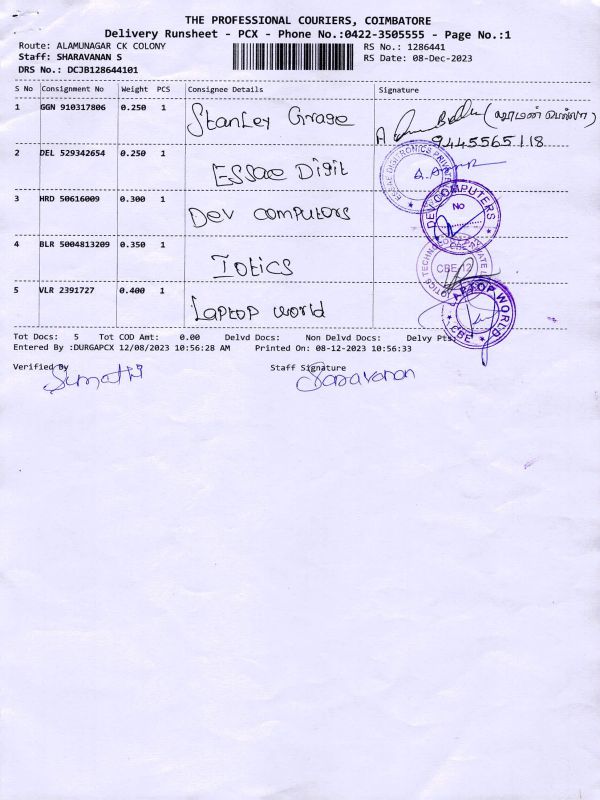 THE PROFESSIONAL COURIERS, COIMBATORE
Delivery Runsheet - PCX - Phone No.:0422-3505555 - Page No.:1
Route: ALAMUNAGAR CK COLONY
RS No.: 1286441
Staff: SHARAVANAN S
RS Date: 08-Dec-2023
DRS No.: DCJB128644101
S No Consignment No Weight PCS Consignee Details Signature
1 GGN 910317806 0.250 1 Stanley Grase
9445565118
2 DEL 529342654 0.250 1 Essae Digit
ESSAE DIGITRONICS PRIVATE
3 HRD 50616009 0.300 1 Dev computors
DEV COMPUTERS
No
4 BLR 5004813209 0.350 1 Iotics
CBE 12
5 VLR 2391727 0.400 1 Laptop world
LAPTOP WORLD
CBE
Tot Docs: 5 Tot COD Amt: 0.00 Delvd Docs: Non Delvd Docs: Delvy Pts:
Entered By :DURGAPCX 12/08/2023 10:56:28 AM Printed On: 08-12-2023 10:56:33
Verified By Staff Signature
Sumathi Saravanan